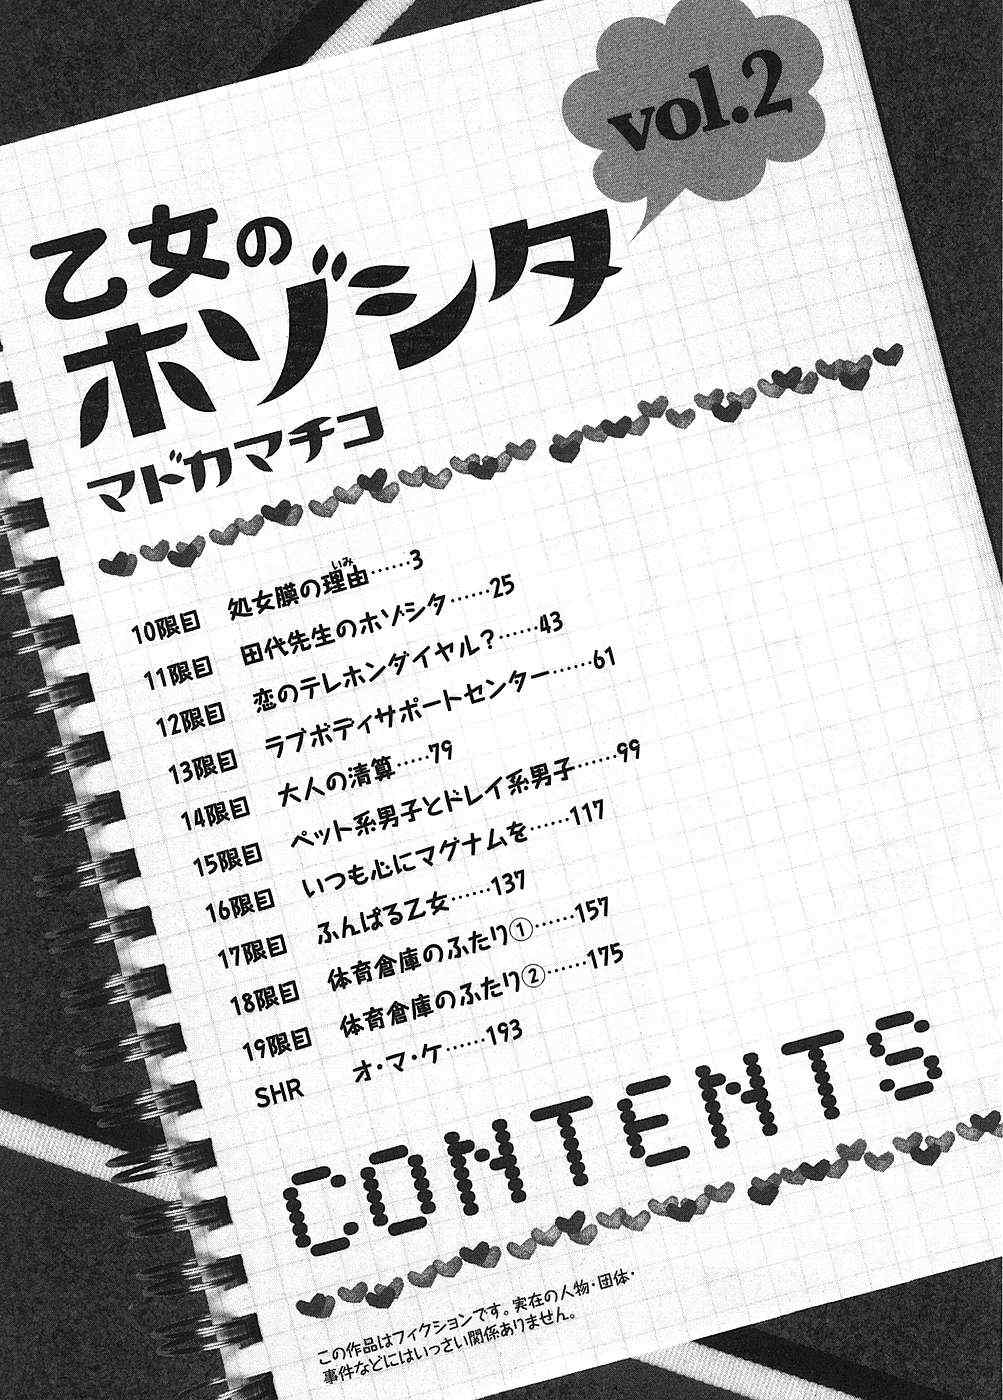 vol.2
乙女の
ホゾシタ
マドカマチコ
10限目 処女膜の理由……3
いみ
11限目 田代先生のホゾシタ……25
12限目 恋のテレホンダイヤル?……43
13限目 ラブボディサポートセンター……61
14限目 大人の清算……79
15限目 ペット系男子とドレイ系男子……99
16限目 いつも心にマグナムを……117
17限目 ふんばる乙女……137
18限目 体育倉庫のふたり①……157
19限目 体育倉庫のふたり②……175
SHR オ・マ・ケ……193
CONTENTS
この作品はフィクションです。実在の人物・団体・
事件などにはいっさい関係ありません。